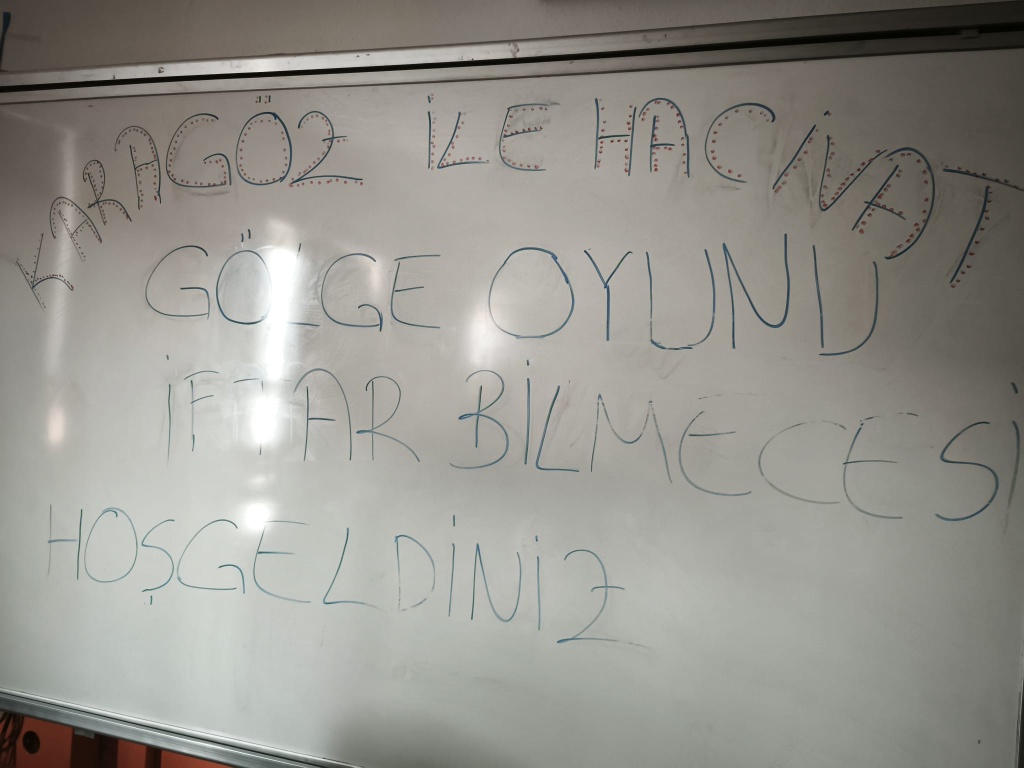 KARAGÖZ İLE HACİVAT
GÖLGE OYUNU
İFTAR BİLMECESİ
HOŞGELDİNİZ